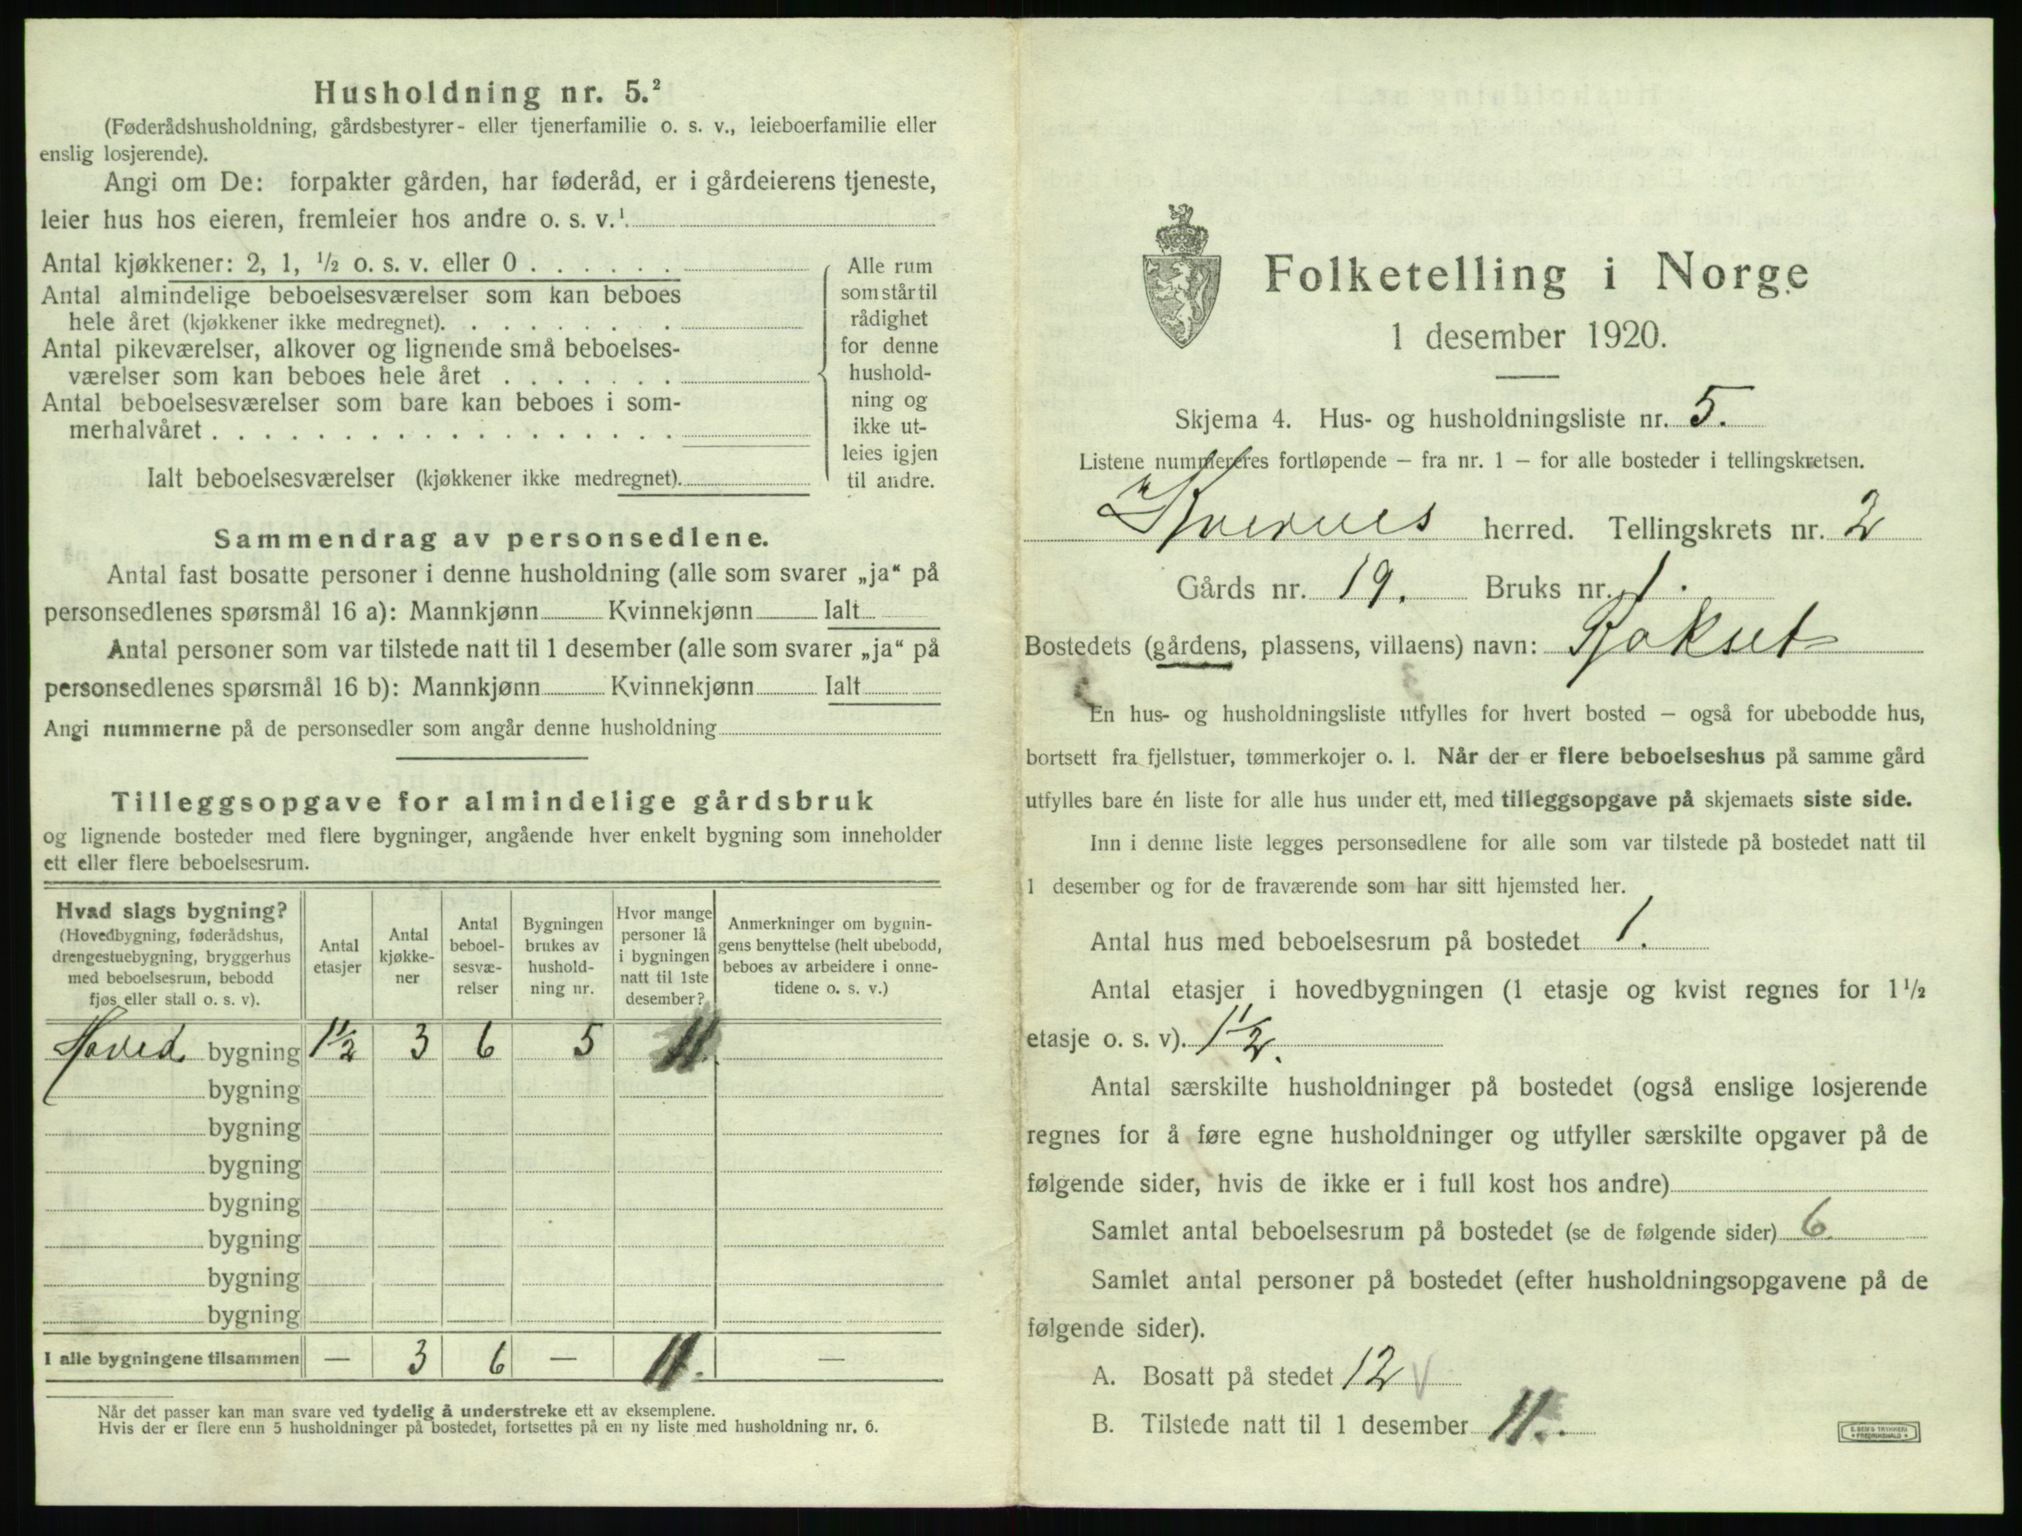 Husholdning nr. 5.²
(Føderådshusholdning, gårdsbestyrer- eller tjenerfamilie o. s. v., leieboerfamilie eller
enslig losjerende).
Angi om De: forpakter gården, har føderåd, er i gårdeierens tjeneste,
leier hus hos eieren, fremleier hos andre o. s. v.¹
Antal kjøkkener: 2, 1, ½ o. s. v. eller 0 . . . . . .
Antal almindelige beboelsesværelser som kan beboes
hele året (kjøkkener ikke medregnet). . . . . . . . .
Antal pikeværelser, alkover og lignende små beboelses-
værelser som kan beboes hele året . . . . . . .
Antal beboelsesværelser som bare kan beboes i som-
merhalvåret . . . . . . . . . . . . . . . . . .
Ialt beboelsesværelser (kjøkkener ikke medregnet).
Alle rum
som står til
rådighet
for denne
hushold-
ning og
ikke ut-
leies igjen
til andre.
Sammendrag av personsedlene.
Antal fast bosatte personer i denne husholdning (alle som svarer „ja“ på
personsedlenes spørsmål 16 a): Mannkjønn Kvinnekjønn Ialt
Antal personer som var tilstede natt til 1 desember (alle som svarer „ja“ på
personsedlenes spørsmål 16 b): Mannkjønn Kvinnekjønn Ialt
Angi nummerne på de personsedler som angår denne husholdning
Tilleggsopgave for almindelige gårdsbruk
og lignende bosteder med flere bygninger, angående hver enkelt bygning som inneholder
ett eller flere beboelsesrum.
Hvad slags bygning?
(Hovedbygning, føderådshus,
drengestuebygning, bryggerhus
med beboelsesrum, bebodd
fjøs eller stall o. s. v).
Antal
etasjer
Antal
kjøkke-
ner
Antal
beboel-
sesvæ-
relser
Bygningen
brukes av
hushold-
ning nr.
Hvor mange
personer lå
i bygningen
natt til 1ste
desember?
Anmerkninger om bygnin-
gens benyttelse (helt ubebodd,
beboes av arbeidere i onne-
tidene o. s. v.)
Hoved bygning 1½ 3 6 5 11.
bygning
bygning
bygning
bygning
bygning
bygning
bygning
I alle bygningene tilsammen — 3 6 — 11. —
Når det passer kan man svare ved tydelig å understreke ett av eksemplene.
Hvis der er flere enn 5 husholdninger på bostedet, fortsettes på en ny liste med husholdning nr. 6.
Folketelling i Norge
1 desember 1920.
Skjema 4. Hus- og husholdningsliste nr. 5.
Listene nummereres fortløpende – fra nr. 1 – for alle bosteder i tellingskretsen.
Kvernes herred. Tellingskrets nr. 2
Gårds nr. 19. Bruks nr. 1.
Bostedets (gårdens, plassens, villaens) navn: Rokset
En hus- og husholdningsliste utfylles for hvert bosted – også for ubebodde hus,
bortsett fra fjellstuer, tømmerkojer o. l. Når der er flere beboelseshus på samme gård
utfylles bare én liste for alle hus under ett, med tilleggsopgave på skjemaets siste side.
Inn i denne liste legges personsedlene for alle som var tilstede på bostedet natt til
1 desember og for de fraværende som har sitt hjemsted her.
Antal hus med beboelsesrum på bostedet 1.
Antal etasjer i hovedbygningen (1 etasje og kvist regnes for 1½
etasje o. s. v). 1½.
Antal særskilte husholdninger på bostedet (også enslige losjerende
regnes for å føre egne husholdninger og utfyller særskilte opgaver på de
følgende sider, hvis de ikke er i full kost hos andre)
Samlet antal beboelsesrum på bostedet (se de følgende sider) 6.
Samlet antal personer på bostedet (efter husholdningsopgavene på de
følgende sider).
A. Bosatt på stedet 12 √
B. Tilstede natt til 1 desember 11.